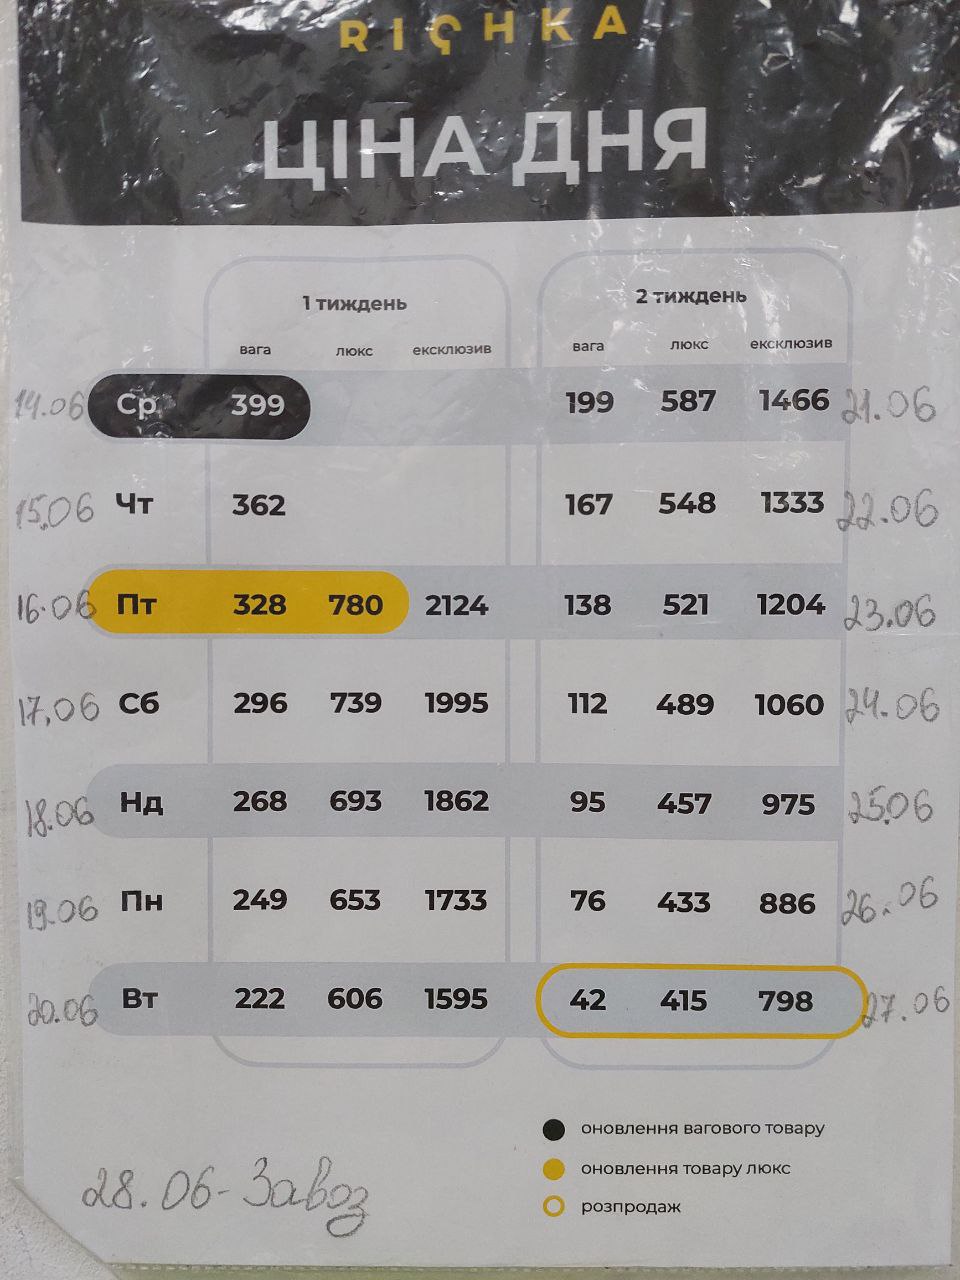 RICHKA
ЦІНА ДНЯ
1 тиждень 2 тиждень
вага люкс ексклюзив вага люкс ексклюзив
14.06 Ср 399 199 587 1466 21.06
15.06 Чт 362 167 548 1333 22.06
16.06 Пт 328 780 2124 138 521 1204 23.06
17.06 Сб 296 739 1995 112 489 1060 24.06
18.06 Нд 268 693 1862 95 457 975 25.06
19.06 Пн 249 653 1733 76 433 886 26.06
20.06 Вт 222 606 1595 42 415 798 27.06
оновлення вагового товару
оновлення товару люкс
розпродаж
28.06 - Завоз